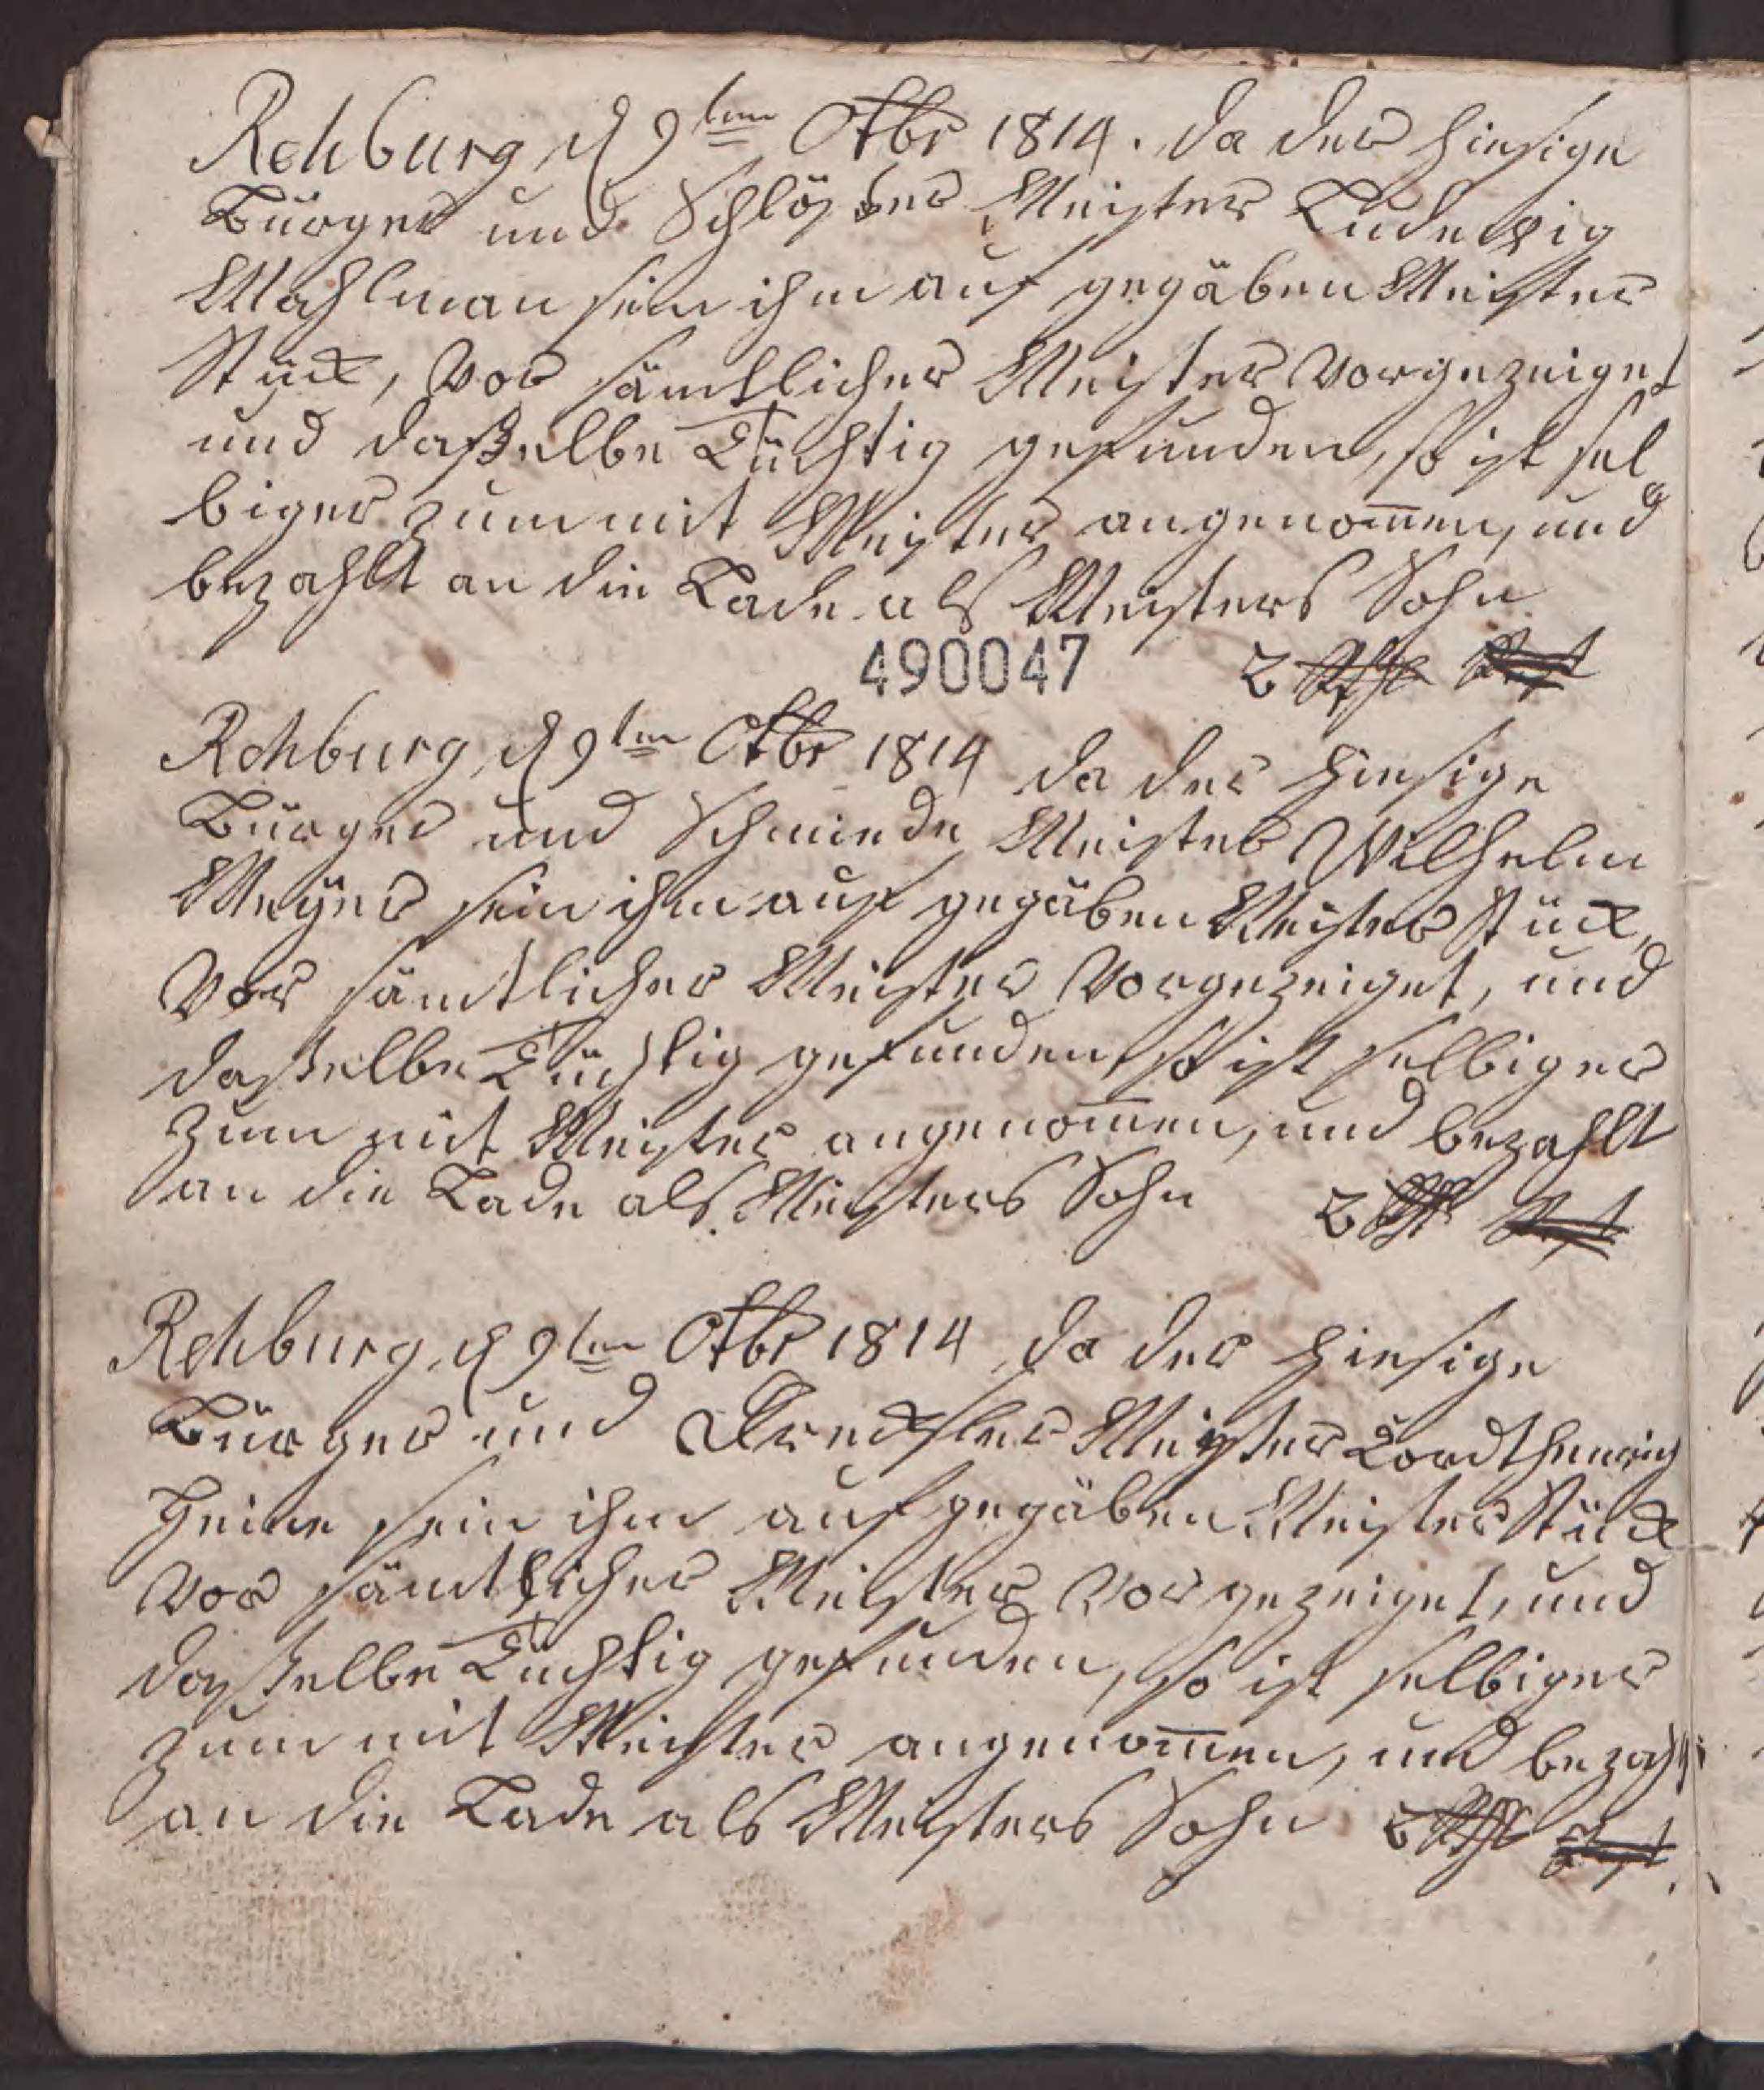 Rehburg, d 9ten Octbr 1814. da der hiesige
Bürger und Schlößer Meister Ludewig
Mahlman sein ihm auf gegäben Meister
Stück, vor sämtlicher Meister vorgezeiget
und daßelbe Tüchtig gefunden, so ist sel
biger zum mit Meister angenom̄en, und
bezahlt an die Lade als Meisters Sohn
490047 2 Rthl
Rehburg, d 9ten Octbr 1814 da der hiesige
Bürger und Schmiede Meister Wilhelm
Meÿer sein ihm auf gegäben Meister Stück,
vor sämtlicher Meister vorgezeiget, und
daßelbe Tüchtig gefunden, so ist selbiger
zum mit Meister angenom̄en, und bezahlt
an die Lade als Meisters Sohn 2 Rthl
Rehburg, d 9ten Octbr 1814 da der hiesige
Bürger und Drechsler Meister Cordthenrich
Heine sein ihm auf gegäben Meister Stück
vor sämtlicher Meister vorgezeiget, und
daßelbe Tüchtig gefunden, so ist selbiger
zum mit Meister angenom̄en, und bezahlt
an die Lade als Meisters Sohn 2 Rthl